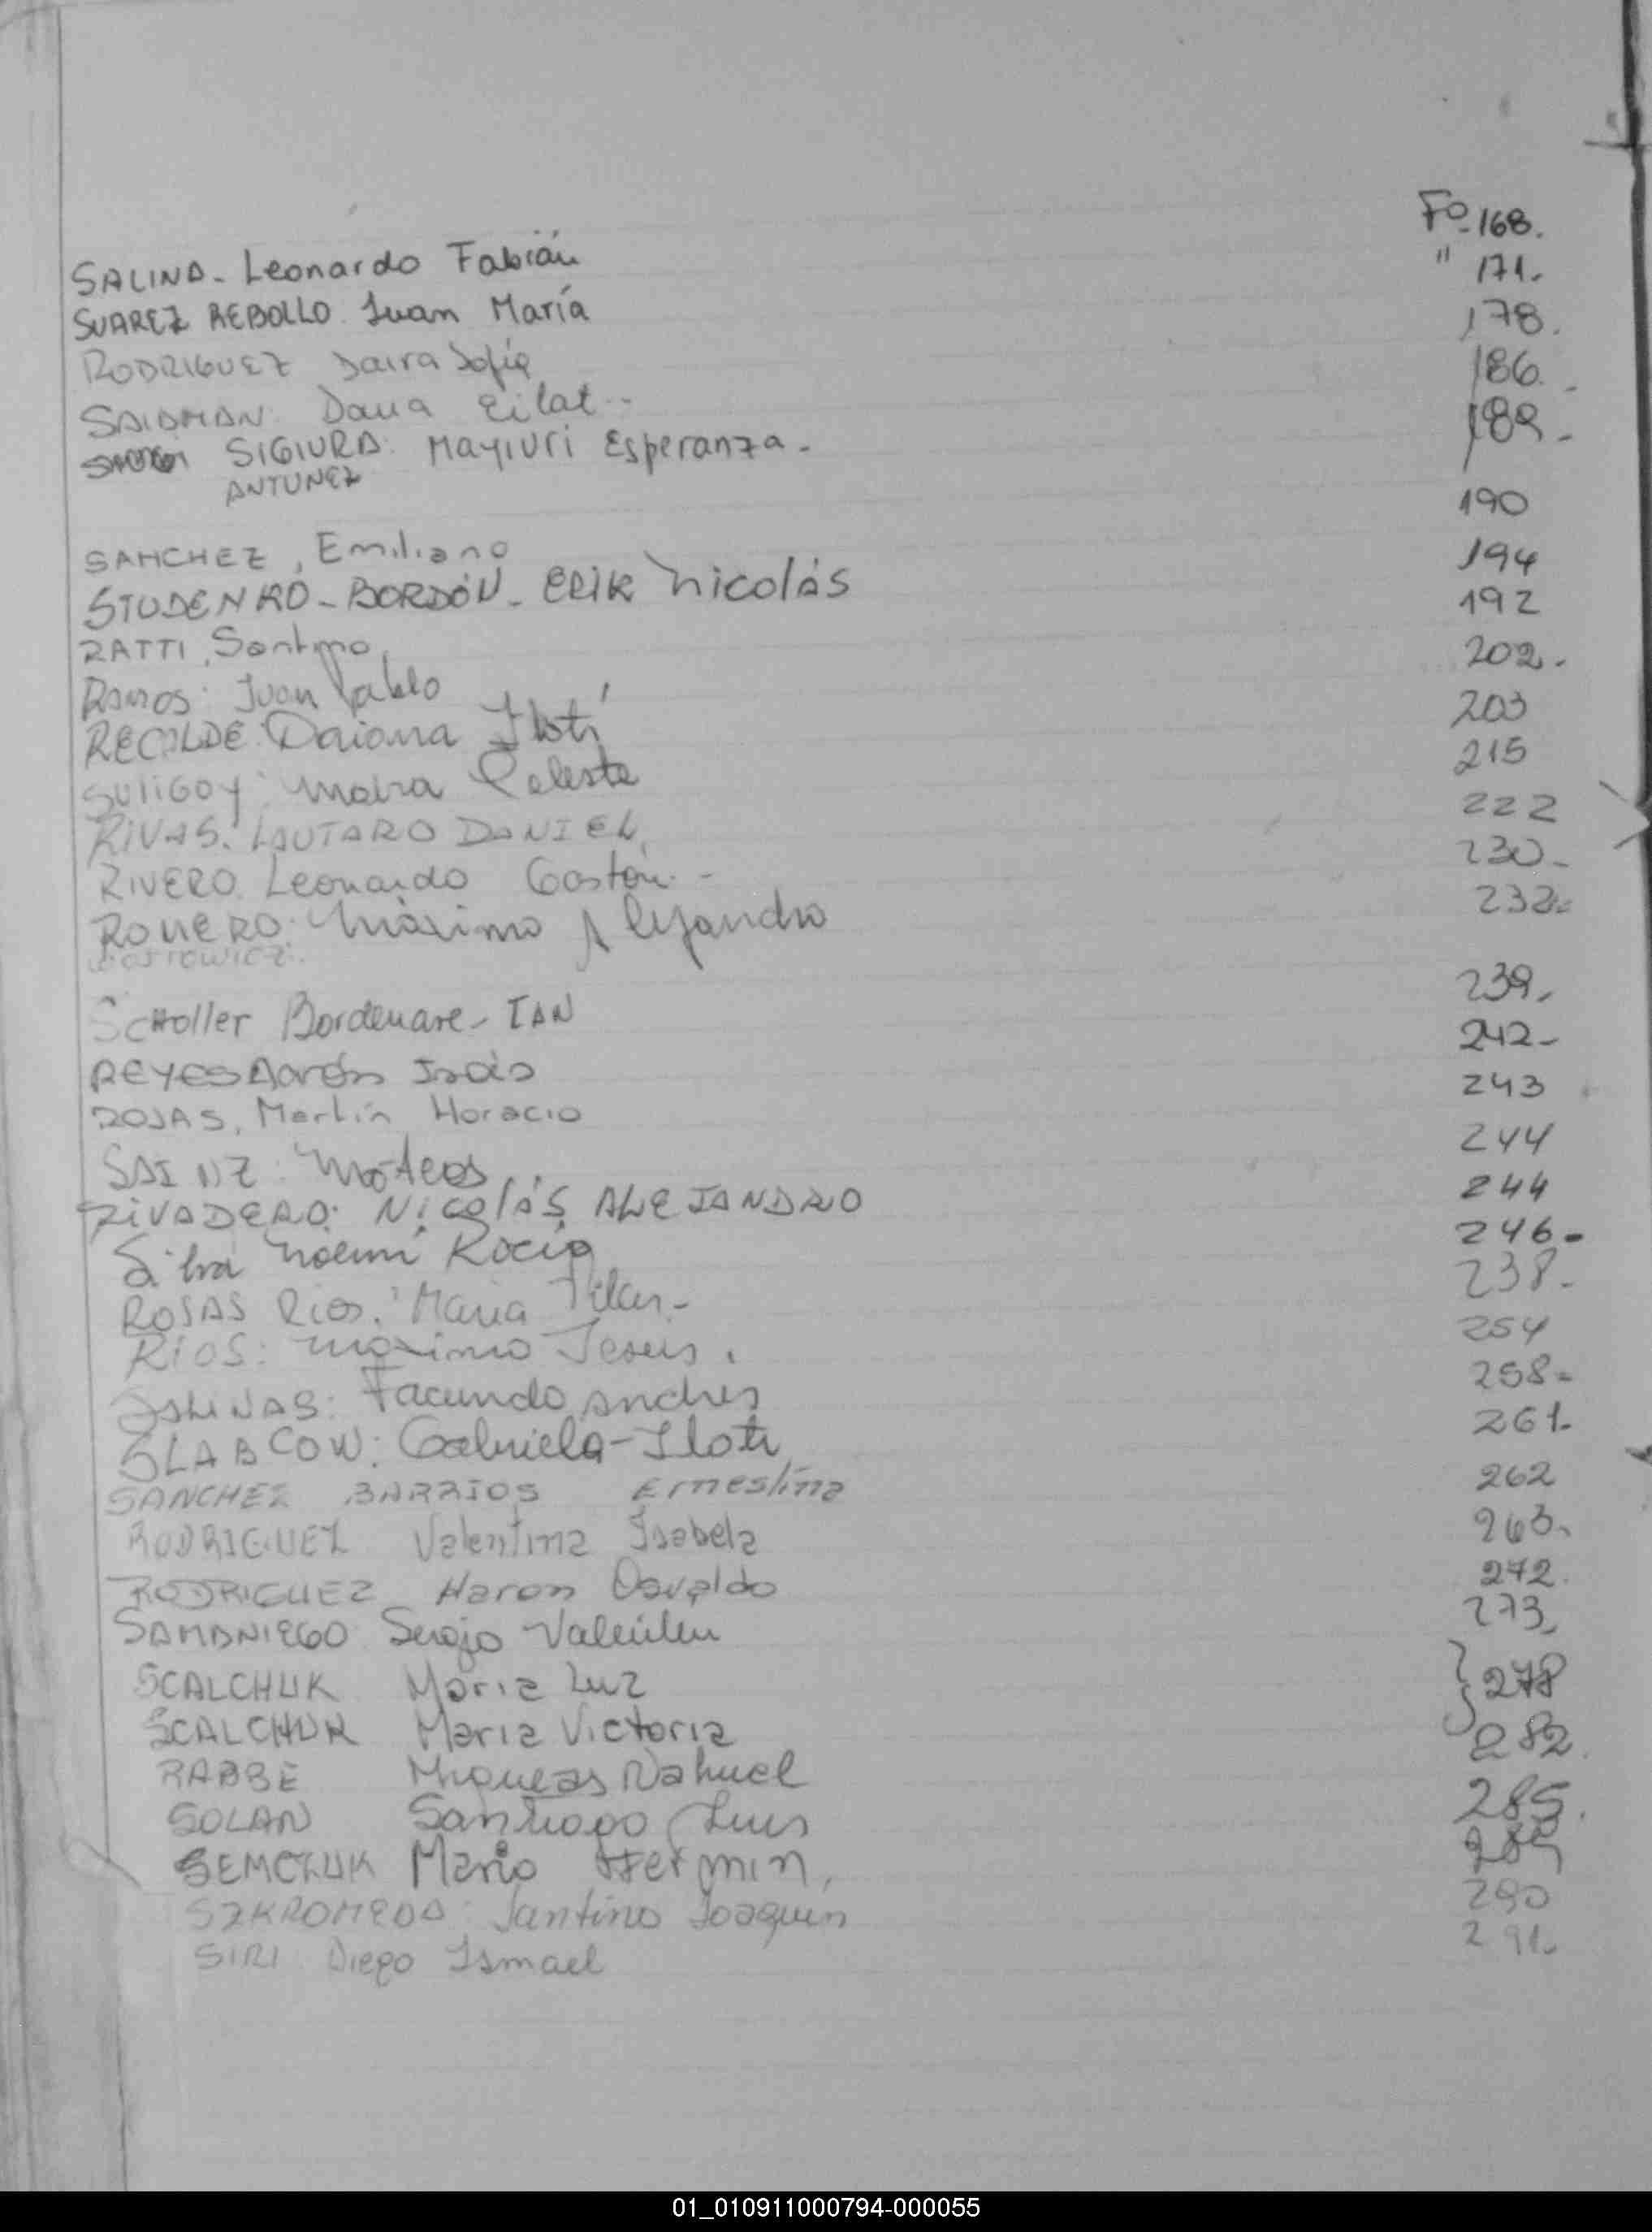 SALINA - Leonardo Fabián Fº 168.
SUAREZ REBOLLO Juan María " 171.
RODRIGUEZ Daira Sofía 178.
SAIDMAN. Dana Eilat.. 186.
SIGIURA. Mayiuri Esperanza. 189.
ANTUNEZ
SANCHEZ, Emiliano 190
STUDENKO - BORDÓN - ERIK Nicolás 194
RATTI, Santino 192
RAMOS: Juan Pablo 202.
RECALDE: Daiana Itatí 203
SULIGOY: Maira Celeste 215
RIVAS. LAUTARO DANIEL 222
RIVERO. Leonardo Gastón. - 230.
ROMERO. Máximo Alejandro 232
Scholler Bordenave - IAN 239.
REYES Aarón Isaís 242-
ROJAS, Martín Horacio 243
SAINZ: Mateos 244
RIVADERO: Nicolás ALEJANDRO 244
Silva Noemí Rocío 246-
ROSAS Rios. María Pilar - 238-
RÍOS: Maximo Jesus. 254
SALINAS: Facundo Andres 258-
SLABCOW: Gabriela - Itatí 261-
SANCHEZ BARRIOS Ernestina 262
RODRIGUEZ Valentina Isabela 263.
RODRIGUEZ Haron Osvaldo 272.
SAMANIEGO Sergio Valentin 273.
SCALCHUK Maria Luz } 278
SCALCHUK Maria Victoria
RABBE Miqueas Nahuel 282.
SOLAN Santiago Luis 285.
SEMCZUK Mario Fermin, 285
SZKROMEDA. Santino Joaquin 290
SIRI Diego Ismael 291.
01_010911000794-000055